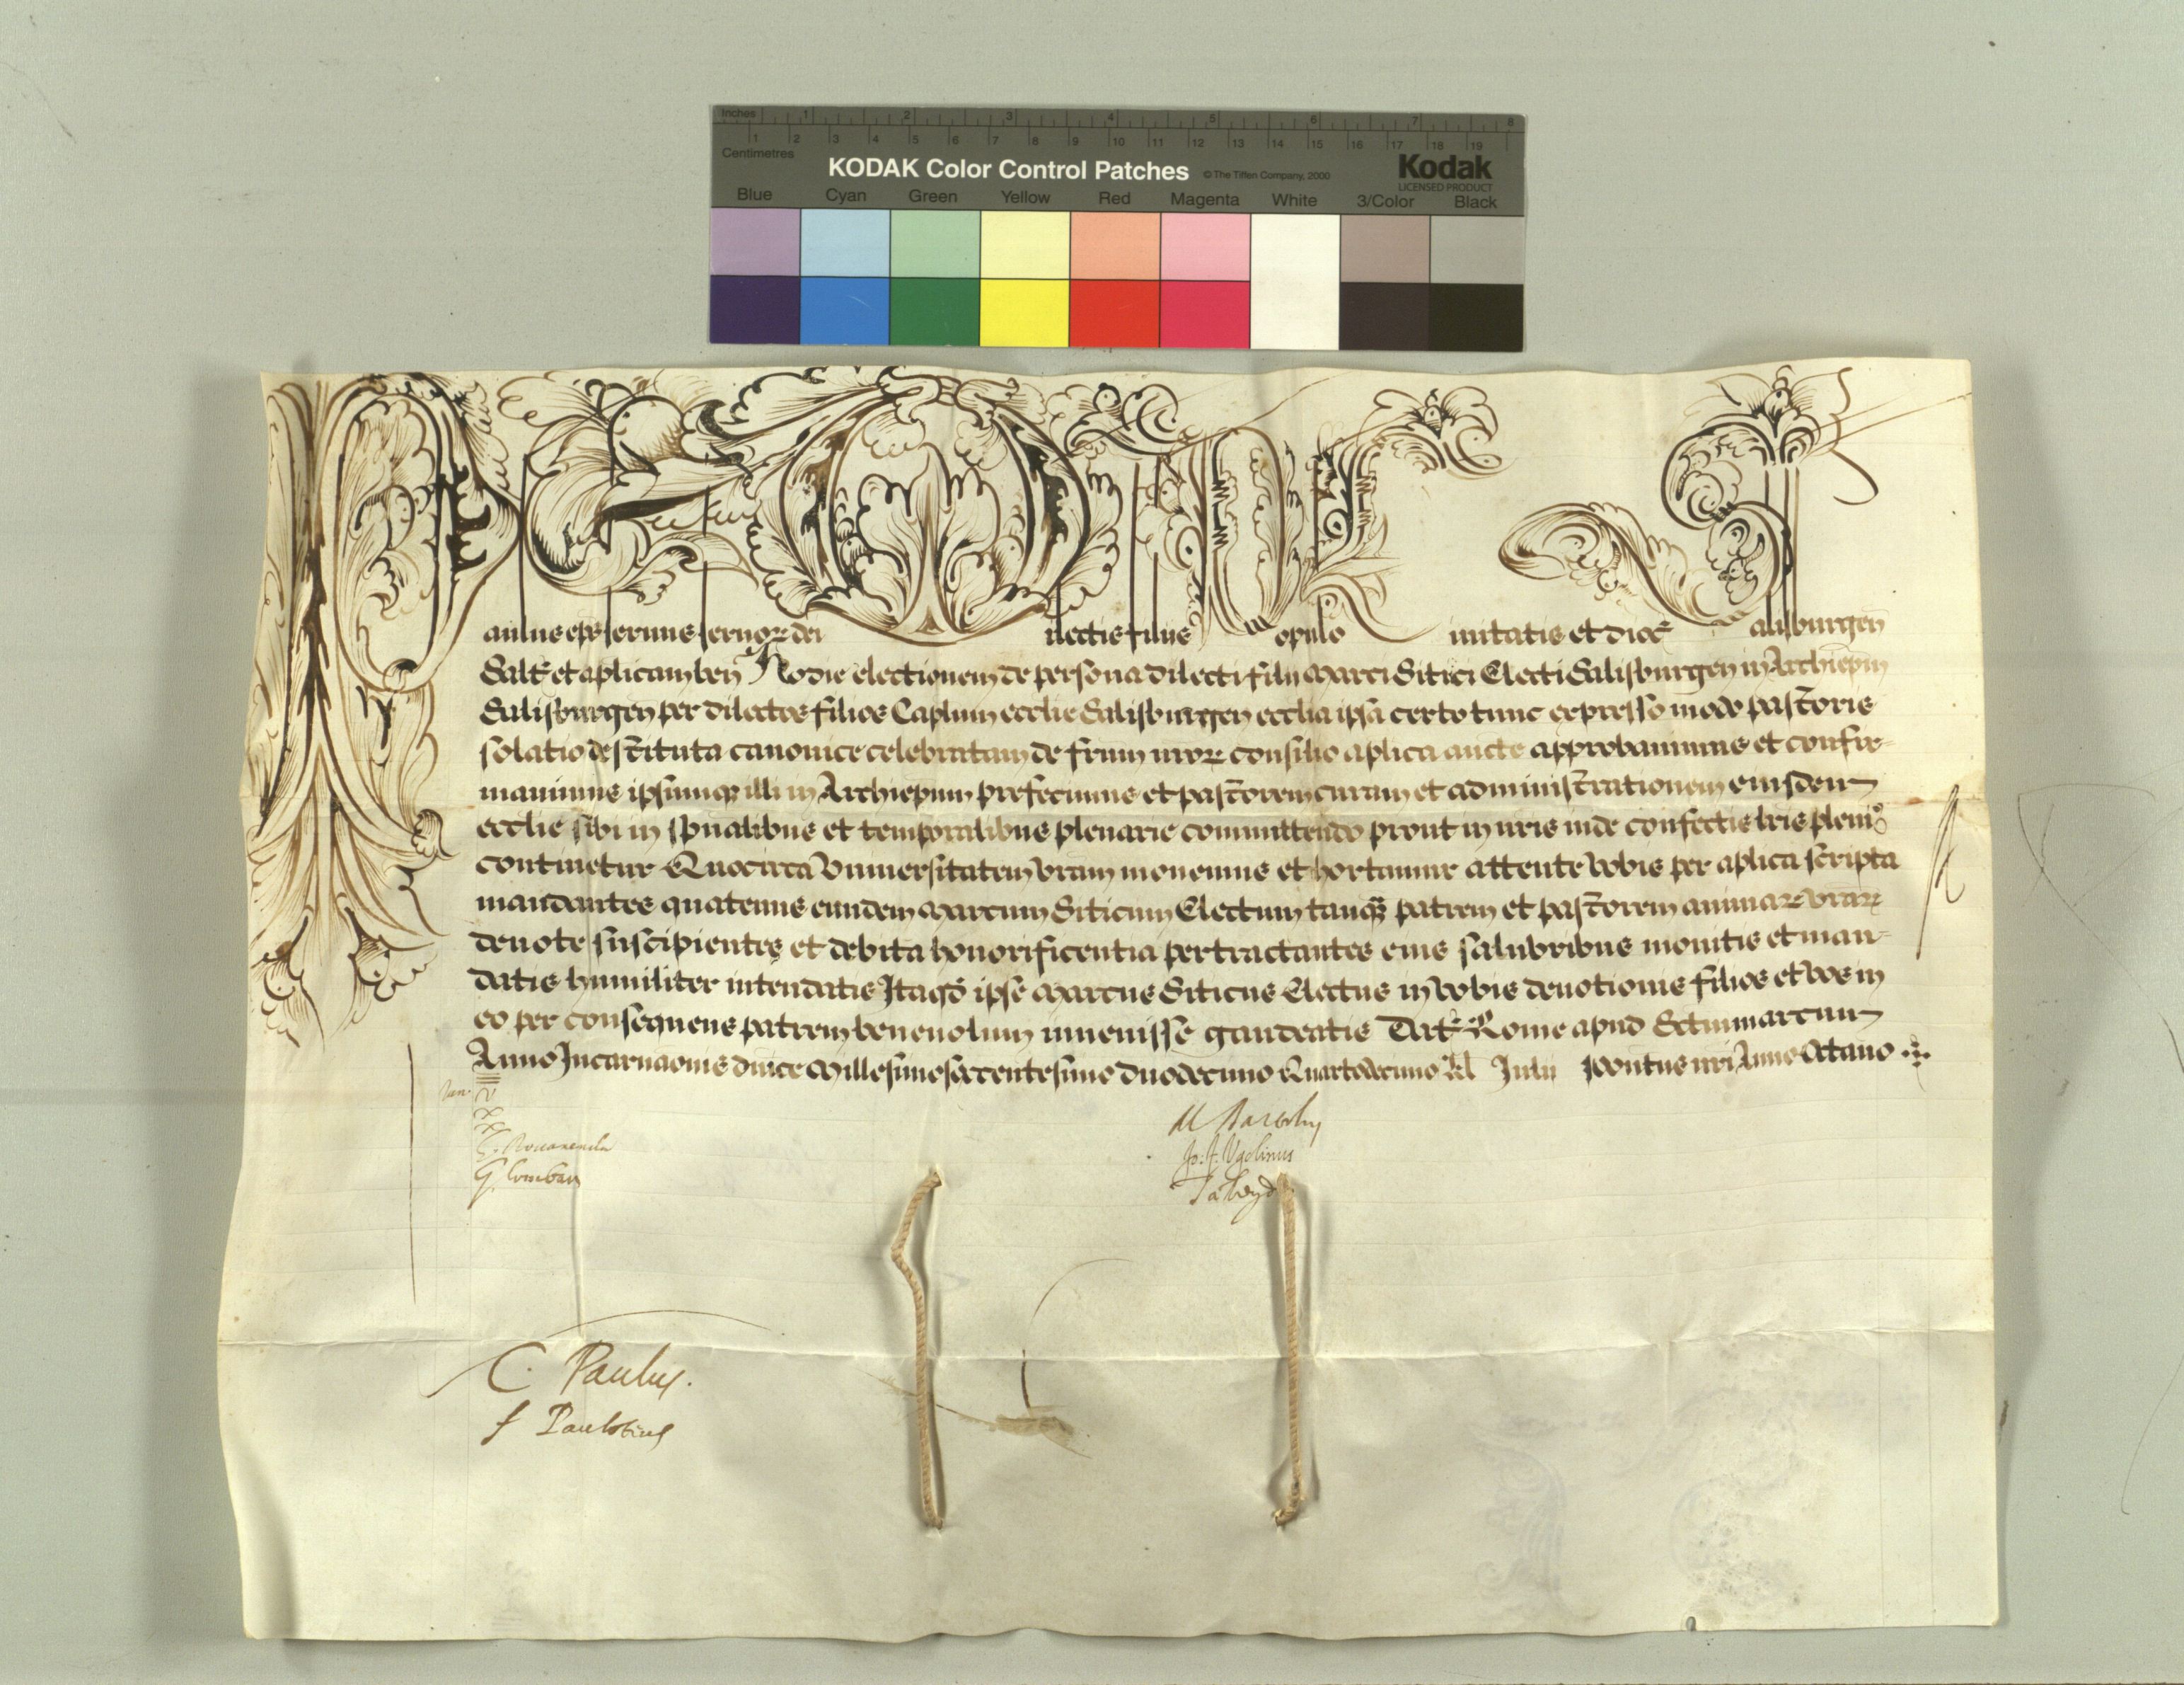 Inches 1 2 3 4 5 6 7 8
1 2 3 4 5 6 7 8 9 10 11 12 13 14 15 16 17 18 19
Centimetres
KODAK Color Control Patches © The Tiffen Company, 2000 Kodak
LICENSED PRODUCT
Blue Cyan Green Yellow Red Magenta White 3/Color Black
Paulus ep̄s seruus seruoꝝ dei Dilectis filiis Populo Ciuitatis et dioc̄ Salisburgen̄
Salt̄ et ap̄licam ben̄ Hodie electionem de persona dilecti filii Marci Sitici Electi Salisburgen̄ in Archiep̄m
Salisburgen̄ per dilectos filios Cap̄lum eccl̄ie Salisburgen̄ eccl̄ia ipsa certo tunc expresso modo pastoris
solatio destituta canonice celebratam de fr̄um nr̄oꝝ consilio ap̄lica aucte approbauimus et confir-
mauimus ipsumqꝫ illi in Archiep̄um prefecimus et pastorem curam et administrationem eiusdem
eccl̄ie sibi in sp̄ualibus et temporalibus plenarie committendo prout in nr̄is inde confectis lr̄is pleniꝰ
continetur Quocirca Vniuersitatem Vram monemus et hortamur attente Vobis per ap̄lica scripta
mandantes quatenus eundem Marcum Siticum Electum tanqꝫ patrem et pastorem animaꝝ Vraꝝ
deuote suscipientes et debita honorificentia pertractantes eius salubribus monitis et man-
datis humiliter intendatis Itaqd̄ ipse Marcus Siticus Electus in Vobis deuotionis filios et Vos in
eo per consequens patrem beneuolum inuenisse gaudeatis Dat̄ Rome apud Sctm̄marcum
Anno Incarnaōnis dn̄ice Millesimosexcentesimo duodecimo Quartodecimo kl̄ Julii Pontus nr̄i Anno Octauo
Jo. J. Vgolinus
G. Lomban
C. Paulus.